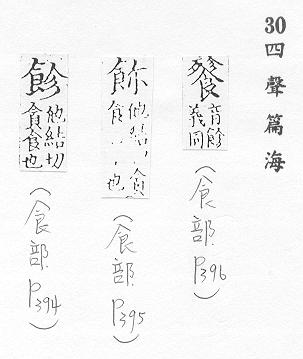 30
四聲篇海
音飻
義同
(食部 P396)
他結、貪
食、、也
(食部 P395)
飻
他結切
貪食也
(食部 P394)